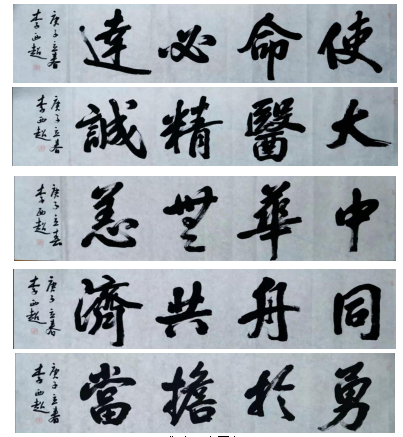 使命必達
庚子立春
李西超
大醫精誠
庚子立春
李西超
中華無恙
庚子立春
李西超
同舟共濟
庚子立春
李西超
勇於擔當
庚子立春
李西超